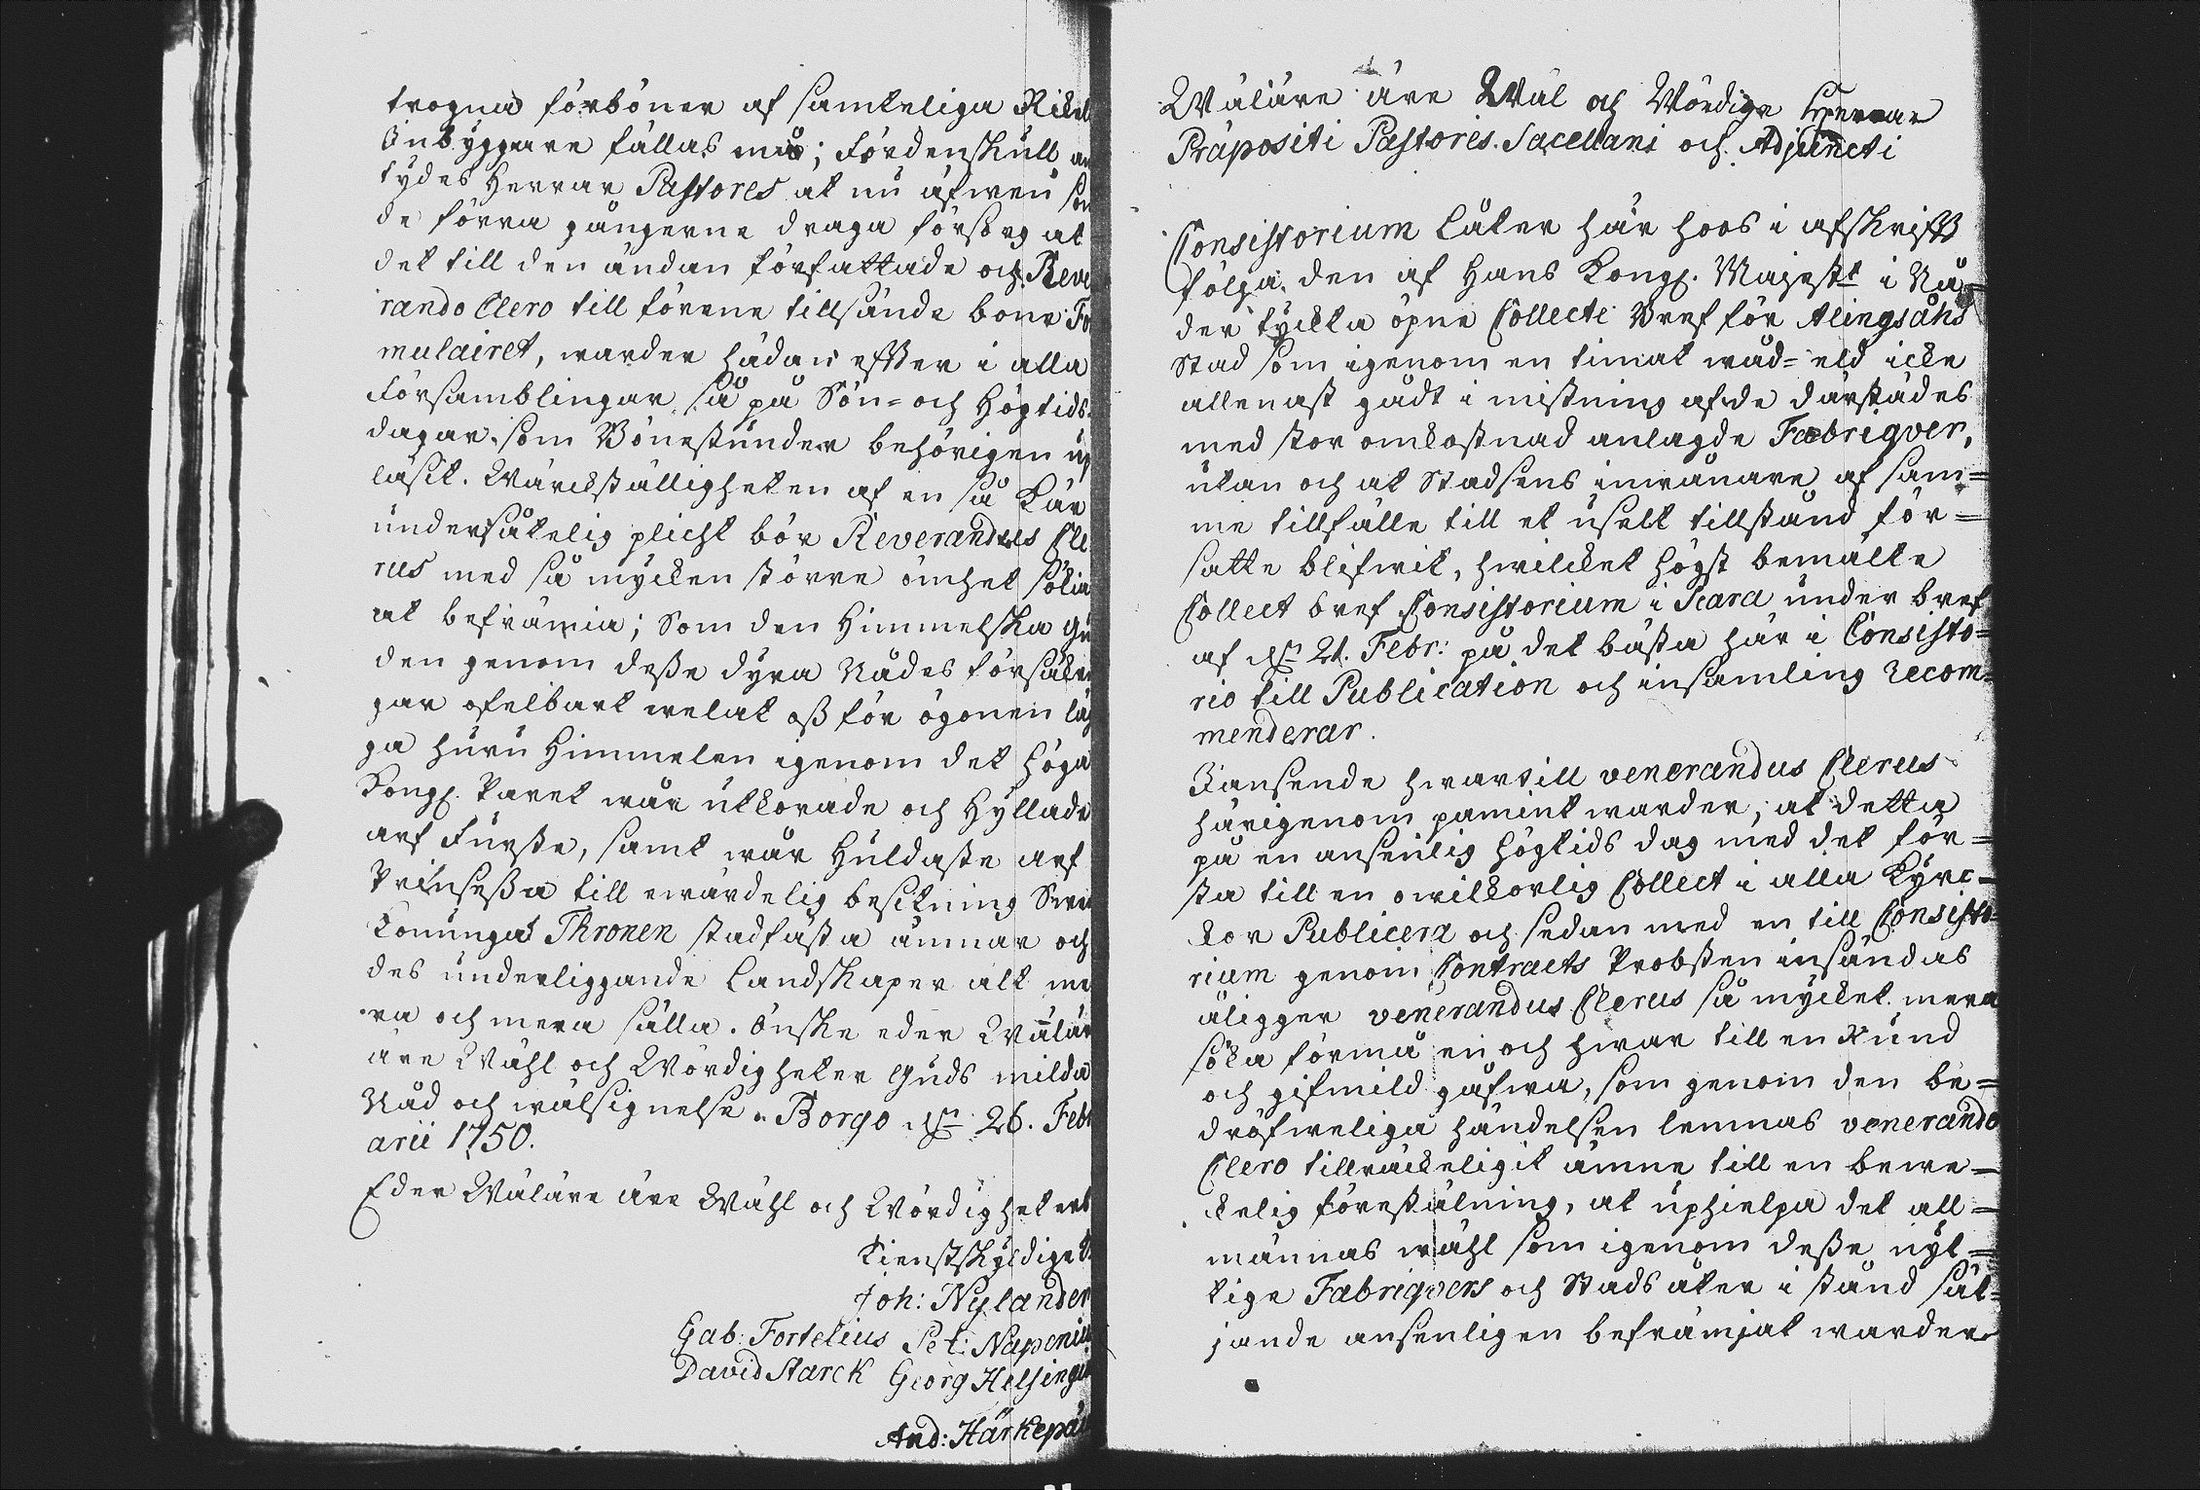 trogna förböner af samteliga Rikets
Inbyggare fällas må; fördenskull an
tydes Herrar Pastores at nu äfwen som
de förra gångerne draga försorg at
det till den ändan författade och Reve
rando Clero till förene tillsände böne For
mulairet, warder hädan effter i alla
Församblingar så på Sön= och Högtids
dagar som Bönestunder behörigen up
läsit. Wärckställigheten af en så kär
undersåtelig plicht bör Reverandus Cle
rus med så mycken större ömhet sökia
at befrämia; Som den Himmelska Gu
den genom desse dyra Nådes försäkrin
gar ofelbart welat oss för ögonen läg
ga huru Himmelen igenom det höga
Kongl. Paret wår utkorade och Hyllade
arf Furste, samt wår Huldaste arf
Prinsessa till ewärdelig besitning Swea
Konunga Thronen stadfästa ämnar och
des underliggande Landskaper alt me
ra och mera sälla. Önske eder Wälär
äre Wähl och Wördigheter Guds milda
Nåd och wälsignelse. Borgo d. 26. Febr
arii 1750.
Eder Wäläre äre Wähl och Wördigheters
Tienstskyldigste
Joh: Nylander
Gab: Fortelius Pet: Naponius
David Starck Georg Helsingius
And: Härkepäus
Wäläre äre Wäl och Wördige Herrar
Præpositi Pastores. Sacellani och Adjuncti
Consistorium låter här hoos i afskrifft
följa den af Hans Kongl. Majestt i Nå=
der tyckta öpne Collecte Bref för Alingsåhs
Stad som igenom en timat wåd=eld icke
allenast gådt i mistning af de därstädes
med stor omkostnad anlagde Fabriqver,
utan och at Stadsens inwånare af sam=
me tillfälle till et uselt tillstånd för=
satte blifwit, hwilcket högst bemälte
Collect bref Consistorium i Scara under bref
af d. 21. Febr: på det bästa här i Consisto=
rio till Publication och insamling recom=
menderar.
Jansende hwartill venerandus Clerus
härigenom påmint warder, at detta
på en ansenlig högtids dag med det för=
sta till en owilkorlig Collect i alla Kyrc=
kor Publicera och sedan med en till Consisto=
rium genom Contracts Probsten insändas
åligger venerandus Clerus så mycket mera
söka förmå en och hwar till en rund
och gifmild gåfwa, som genom den be=
dröfweliga händelsen lemnas venerando
Clero tillräckeligit ämne till en bewe=
kelig föreställning, at uphielpa det all=
männas wähl som igenom desse nyt=
tige Fabriqvers och Stads åter i stånd sät=
jande ansenligen befrämjat warder